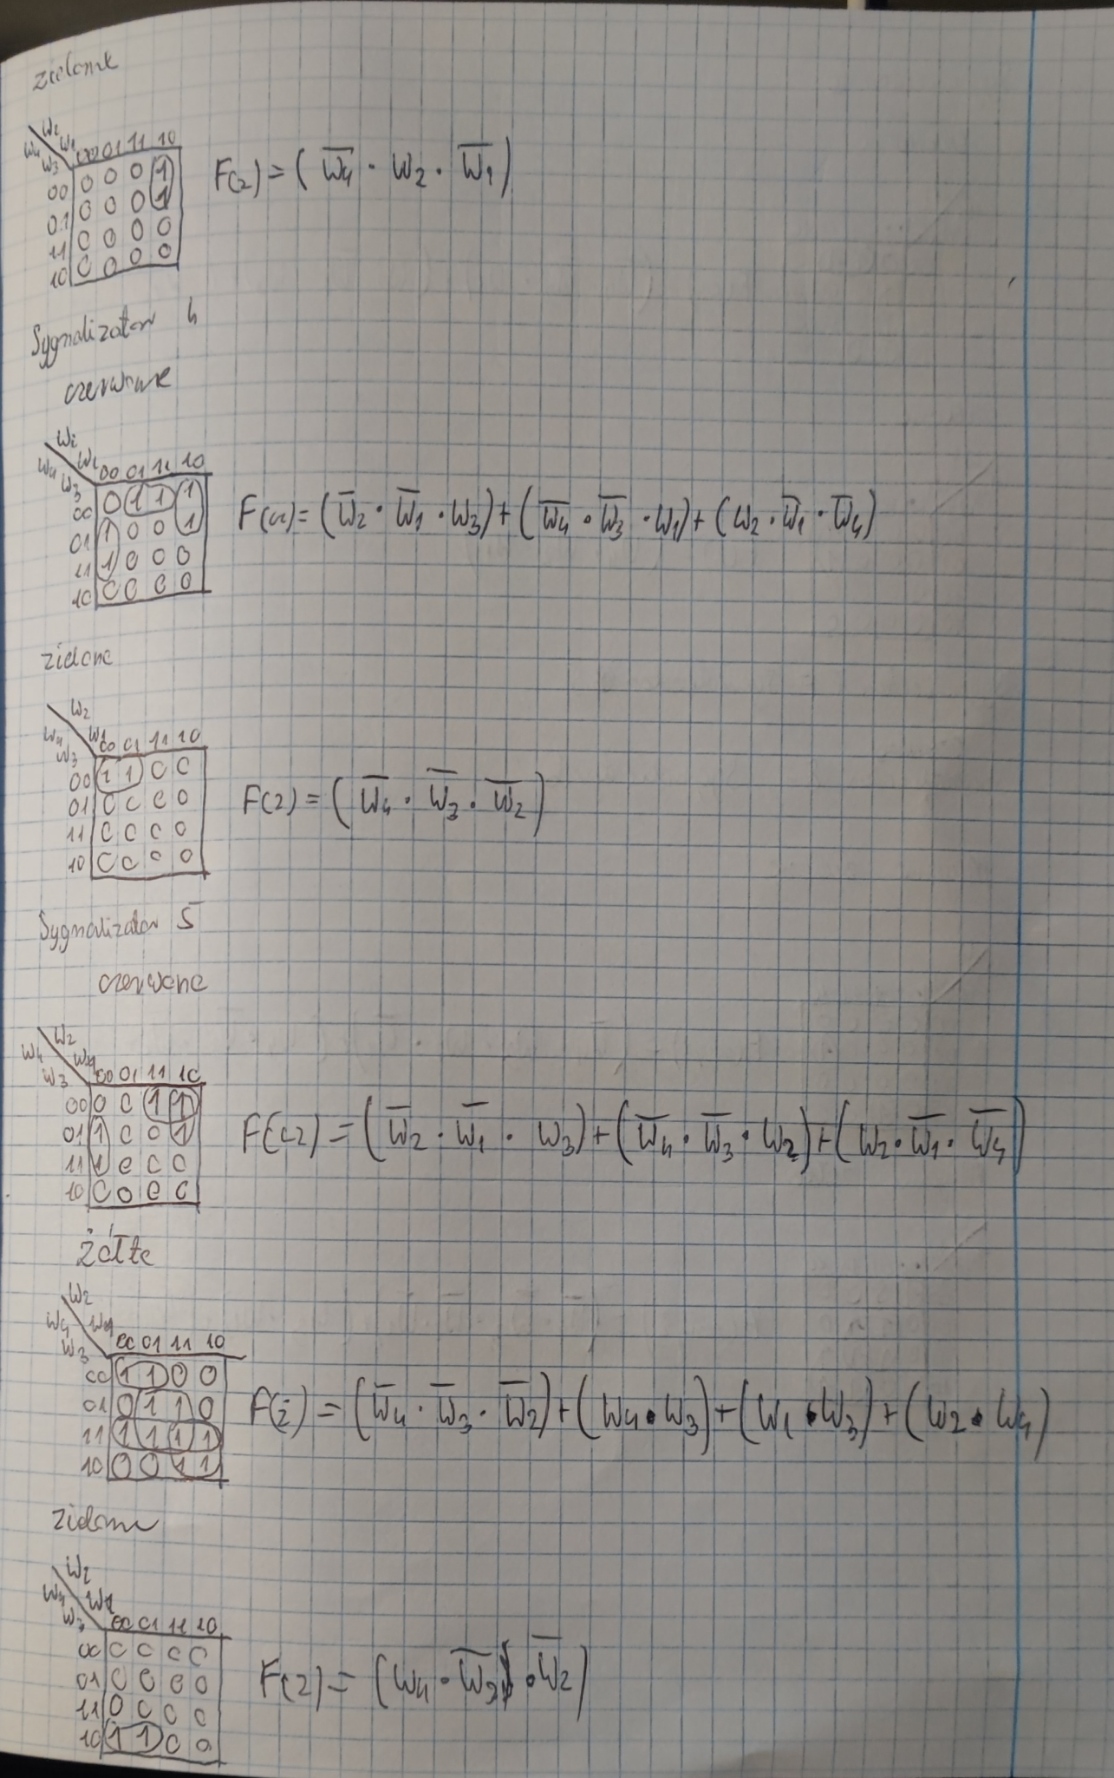 zielone
W₂
W₄ W₁
W₃ 00 01 11 10
00 0 0 0 1
01 0 0 0 1
11 0 0 0 0
10 0 0 0 0
F(z) = ( W̅₄ · W₂ · W̅₁ )
Sygnalizator 4
czerwone
W₂
W₄ W₁
W₃ 00 01 11 10
00 0 1 1 1
01 1 0 0 1
11 1 0 0 0
10 0 0 0 0
F(cz) = ( W̅₂ · W̅₁ · W₃ ) + ( W̅₄ · W̅₃ · W₁ ) + ( W₂ · W̅₁ · W̅₄ )
zielone
W₂
W₄ W₁
W₃ 00 01 11 10
00 1 1 0 0
01 0 0 0 0
11 0 0 0 0
10 0 0 0 0
F(z) = ( W̅₄ · W̅₃ · W̅₂ )
Sygnalizator 5
czerwone
W₂
W₄ W₁
W₃ 00 01 11 10
00 0 0 1 1
01 1 0 0 1
11 1 0 0 0
10 0 0 0 0
F(cz) = ( W̅₂ · W̅₁ · W₃ ) + ( W̅₄ · W̅₃ · W₂ ) + ( W₂ · W̅₁ · W̅₄ )
żółte
W₂
W₄ W₁
W₃ 00 01 11 10
00 1 1 0 0
01 0 1 1 0
11 1 1 1 1
10 0 0 1 1
F(ż) = ( W̅₄ · W̅₃ · W̅₂ ) + ( W₄ · W₃ ) + ( W₁ · W₃ ) + ( W₂ · W₄ )
zielone
W₂
W₄ W₁
W₃ 00 01 11 10
00 0 0 0 0
01 0 0 0 0
11 0 0 0 0
10 1 1 0 0
F(z) = ( W₄ · W̅₃ · W̅₂ )